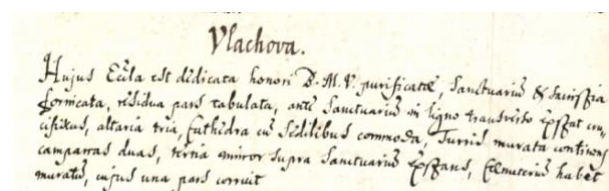 Vlachova.
Hujus Eccla est dedicata honori B. M. V. purificatæ, Sanctuarius &
fornicata, residua pars tabulata, ante Sanctuarius in ligno transverso exstat cru
cifixus, altaria tria, Cathedra cũ Sedilibus commoda, Turris murata continens
campanas duas, tertia minor supra Sanctuarius exstans, Cæmeterius habet
muratus, cujus una pars corruit